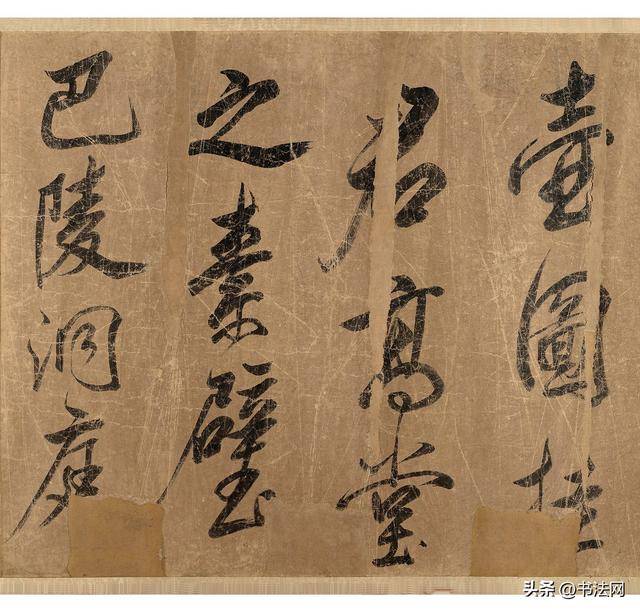 壺圖挂
君高堂
之素壁
巴陵洞庭
头条 @书法网